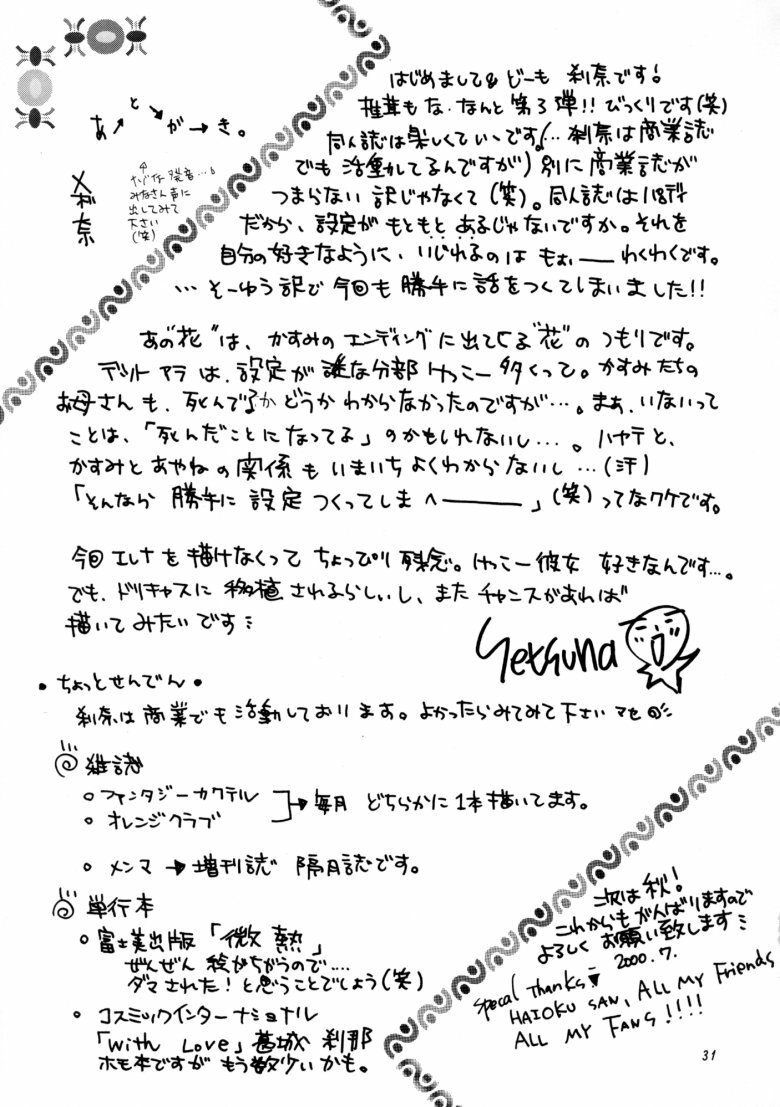 あとがき。
刹奈
ナゾナ発音…。
みなさん声に
出してみて
下さい
(笑)
はじめまして&どーも 刹奈です!
椎茸も な、なんと 第3弾!! びっくりです(笑)
同人誌は楽しくていいです(… 刹奈は商業誌
でも 活動してるんですが) 別に 商業誌が
つまらない 訳じゃなくて (笑)。同人誌はパロディ
だから、設定が もともと あるじゃないですか。それを
自分の好きなように、いじれるのは もぉーー わくわくです。
… そーゆう訳で 今回も 勝手に話をつくてしまいました!!
あの"花"は、かすみの エンディング に出てくる "花"の つもりです。
デット アラ は、設定が 謎な分部 けっこー 多くって。かすみ たちの
お母さん も、死んでるか どうか わからなかったのですが…。まぁ、いないって
ことは、「死んだことに なってる」のかもしれないし…。ハヤテ と、
かすみと あやねの 関係 も いまいち よくわからないし…(汗)
「そんなら 勝手に 設定 つくってしまへーーー」(笑) ってなワケです。
今回 エレナ を 描けなくって ちょっぴり 残念。けっこー 彼女 好きなんです…。
でも、ドリキャスに 移植 されるらしいし、また チャンスがあれば
描いて みたいです
Setsuna
• ちょっとせんでん •
刹奈は 商業でも 活動しております。よかったらみてみて下さいマセ
雑誌
○ ファンタジーカクテル
○ オレンジクラブ
→ 毎月 どちらかに 1本 描いてます。
○ メンマ → 増刊誌 隔月誌です。
単行本
○ 富士美出版 「微熱」
ぜんぜん 絵がちがうので…。
ダマされた! と 思うことでしょう(笑)
○ コスミックインターナショナル
「With Love」葛城 刹那
ホモ本ですが もう 数少いかも。
次は 秋!
これからもがんばりますので
よろしく お願い致します
2000.7.
Specal Thanks
HAIOKU SAN, ALL MY Friends
ALL MY FANS!!!!
31